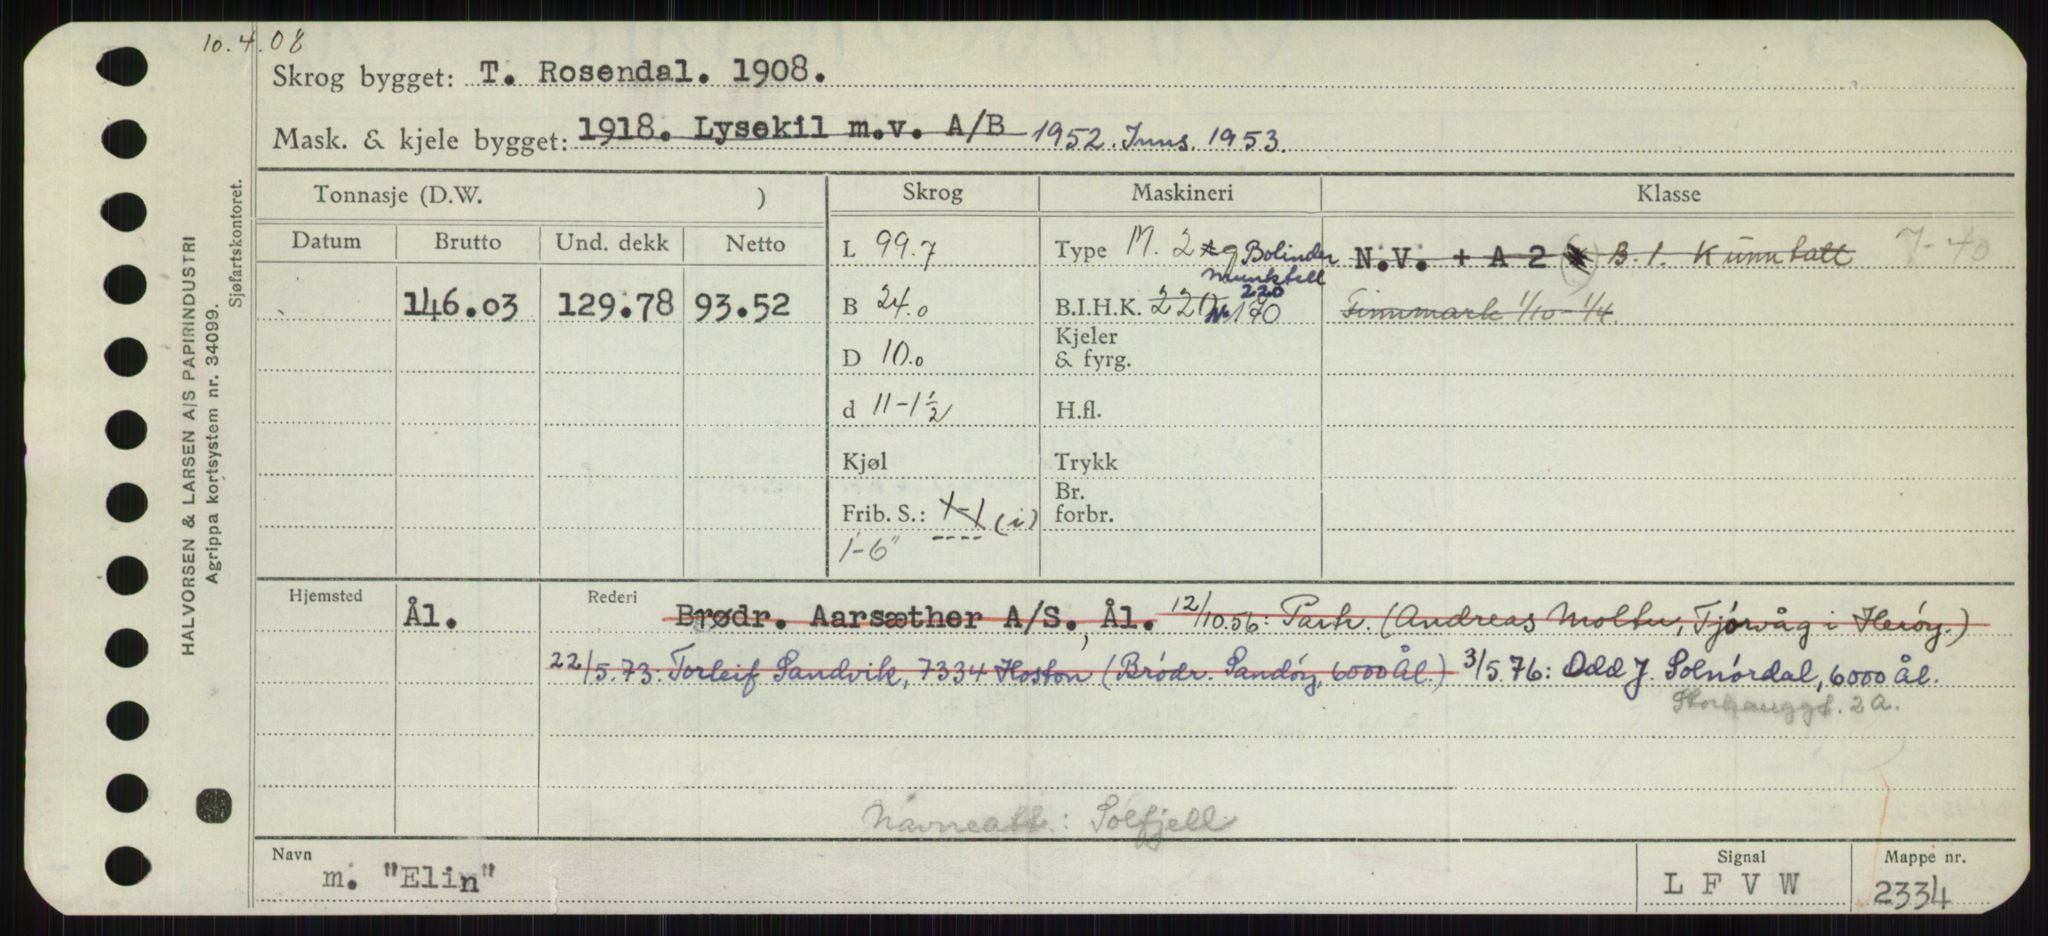 10.4.08
Skrog bygget: T. Rosendal. 1908.
Mask. & kjele bygget: 1918. Lysekil m.v. A/B 1952. Inns. 1953.
Tonnasje (D.W. ) Skrog Maskineri Klasse
Datum Brutto Und. dekk Netto L 99.7 Type M. 2 Bolinder N.V. + A 2 B. 1. Kunn batt 7-40
Munktell
220
146.03 129.78 93.52 B 24.0 B.I.H.K. 220 170 Finnmark 1/10 - 1/4.
D 10.0 Kjeler & fyrg.
d 11-1½ H.fl.
Kjøl Trykk
Frib. S.: (i) Br. forbr.
1'-6"
Hjemsted Ål. Rederi Brødr. Aarsæther A/S., Ål. 12/10.56: Partr. (Andreas Moltu, Tjörvåg i Heröy.)
22/5.73: Torleif Sandvik, 7334 Hoston (Brödr. Sandöy, 6000 Ål.) 3/5.76: Odd J. Solnördal, 6000 Ål.
Storhauggt. 2A.
Navneatt: Solfjell
Navn m. "Elin" Signal L F V W Mappe nr. 2334
HALVORSEN & LARSEN A/S PAPIRINDUSTRI
Agrippa kortsystem nr. 34099.
Sjøfartskontoret.